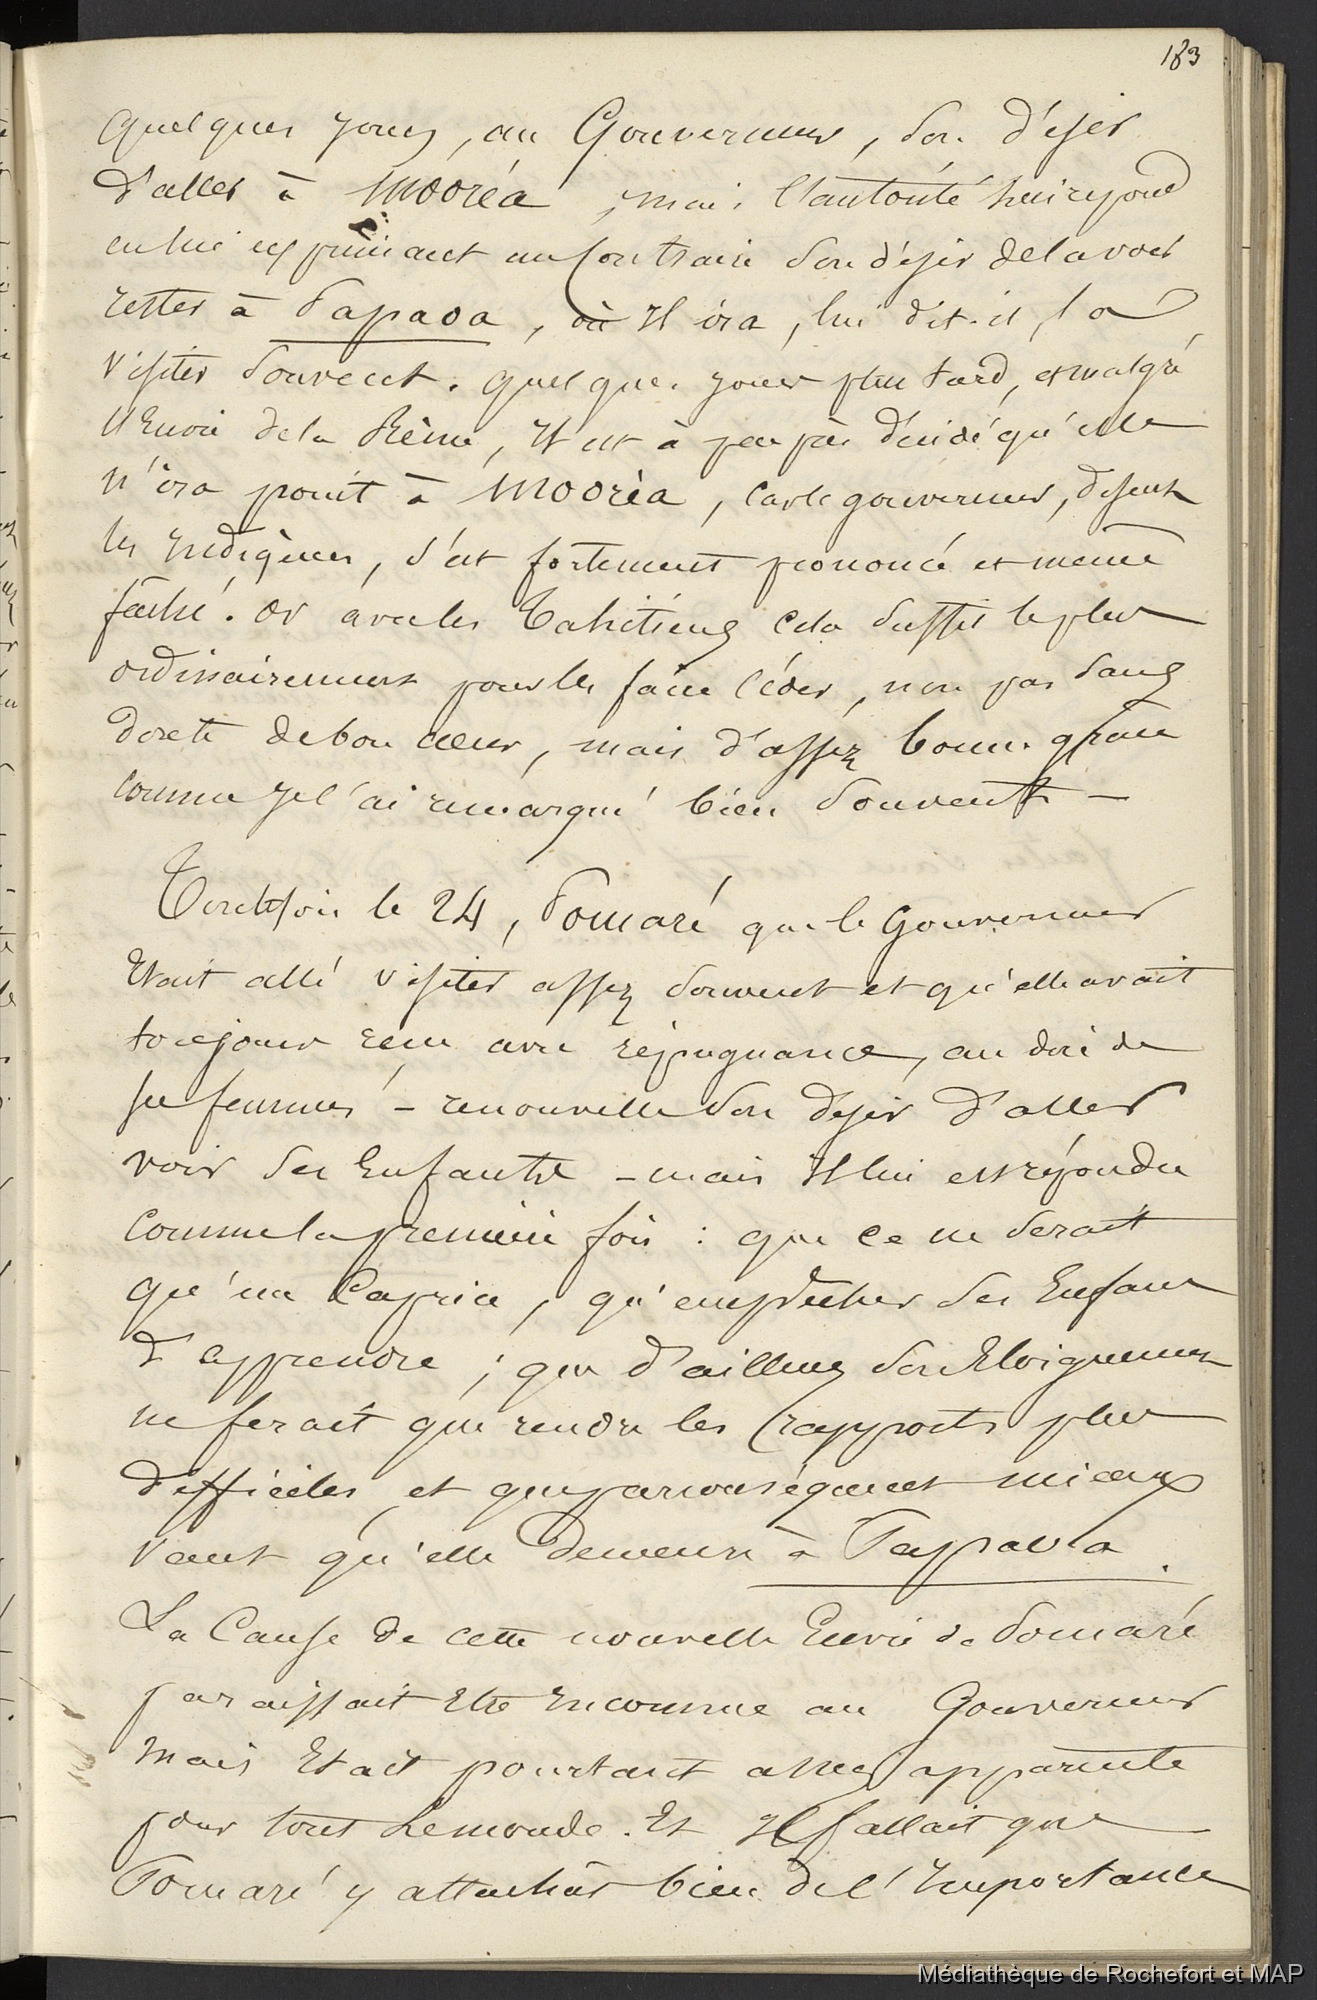 183
quelques jours, au Gouverneur, son désir
d'aller à Mooréa, mais l'autorité lui répond
en lui exprimant au contraire son désir de la voir
rester à Papaoa, où Il ira, lui dit-il, la
visiter souvent. quelques jours plus tard, et malgré
l'Envie de la Reine, Il est à peu près décidé qu'elle
n'ira point à Mooréa, car le gouverneur, disent
les Indigènes, s'est fortement prononcé et même
fâché. or avec les Tahitiens cela suffit le plus
ordinairement pour les faire céder, non pas sans
doute de bon cœur, mais d'assez bonne grâce
comme je l'ai remarqué bien souvent —
Toutefois le 24, Pomaré que le Gouverneur
Etait allé visiter assez souvent et qu'elle avait
toujours reçu avec répugnance, au dire de
ses femmes — renouvelle son désir d'aller
voir ses Enfants — mais Il lui est répondu
comme la première fois : que ce ne serait
qu'un Caprice, qu'empêcher ses Enfans
d'apprendre ; que d'ailleurs son Eloignement
ne ferait que rendre les rapports plus
difficiles et que par conséquent mieux
vaut qu'elle demeure à Papaoa.
La Cause de cette nouvelle Envie de Pomaré
paraissait Etre Inconnue au Gouverneur
mais Etait pourtant assez apparente
pour tout le monde. Et Il fallait que
Pomaré y attachât bien de l'Importance
Médiathèque de Rochefort et MAP